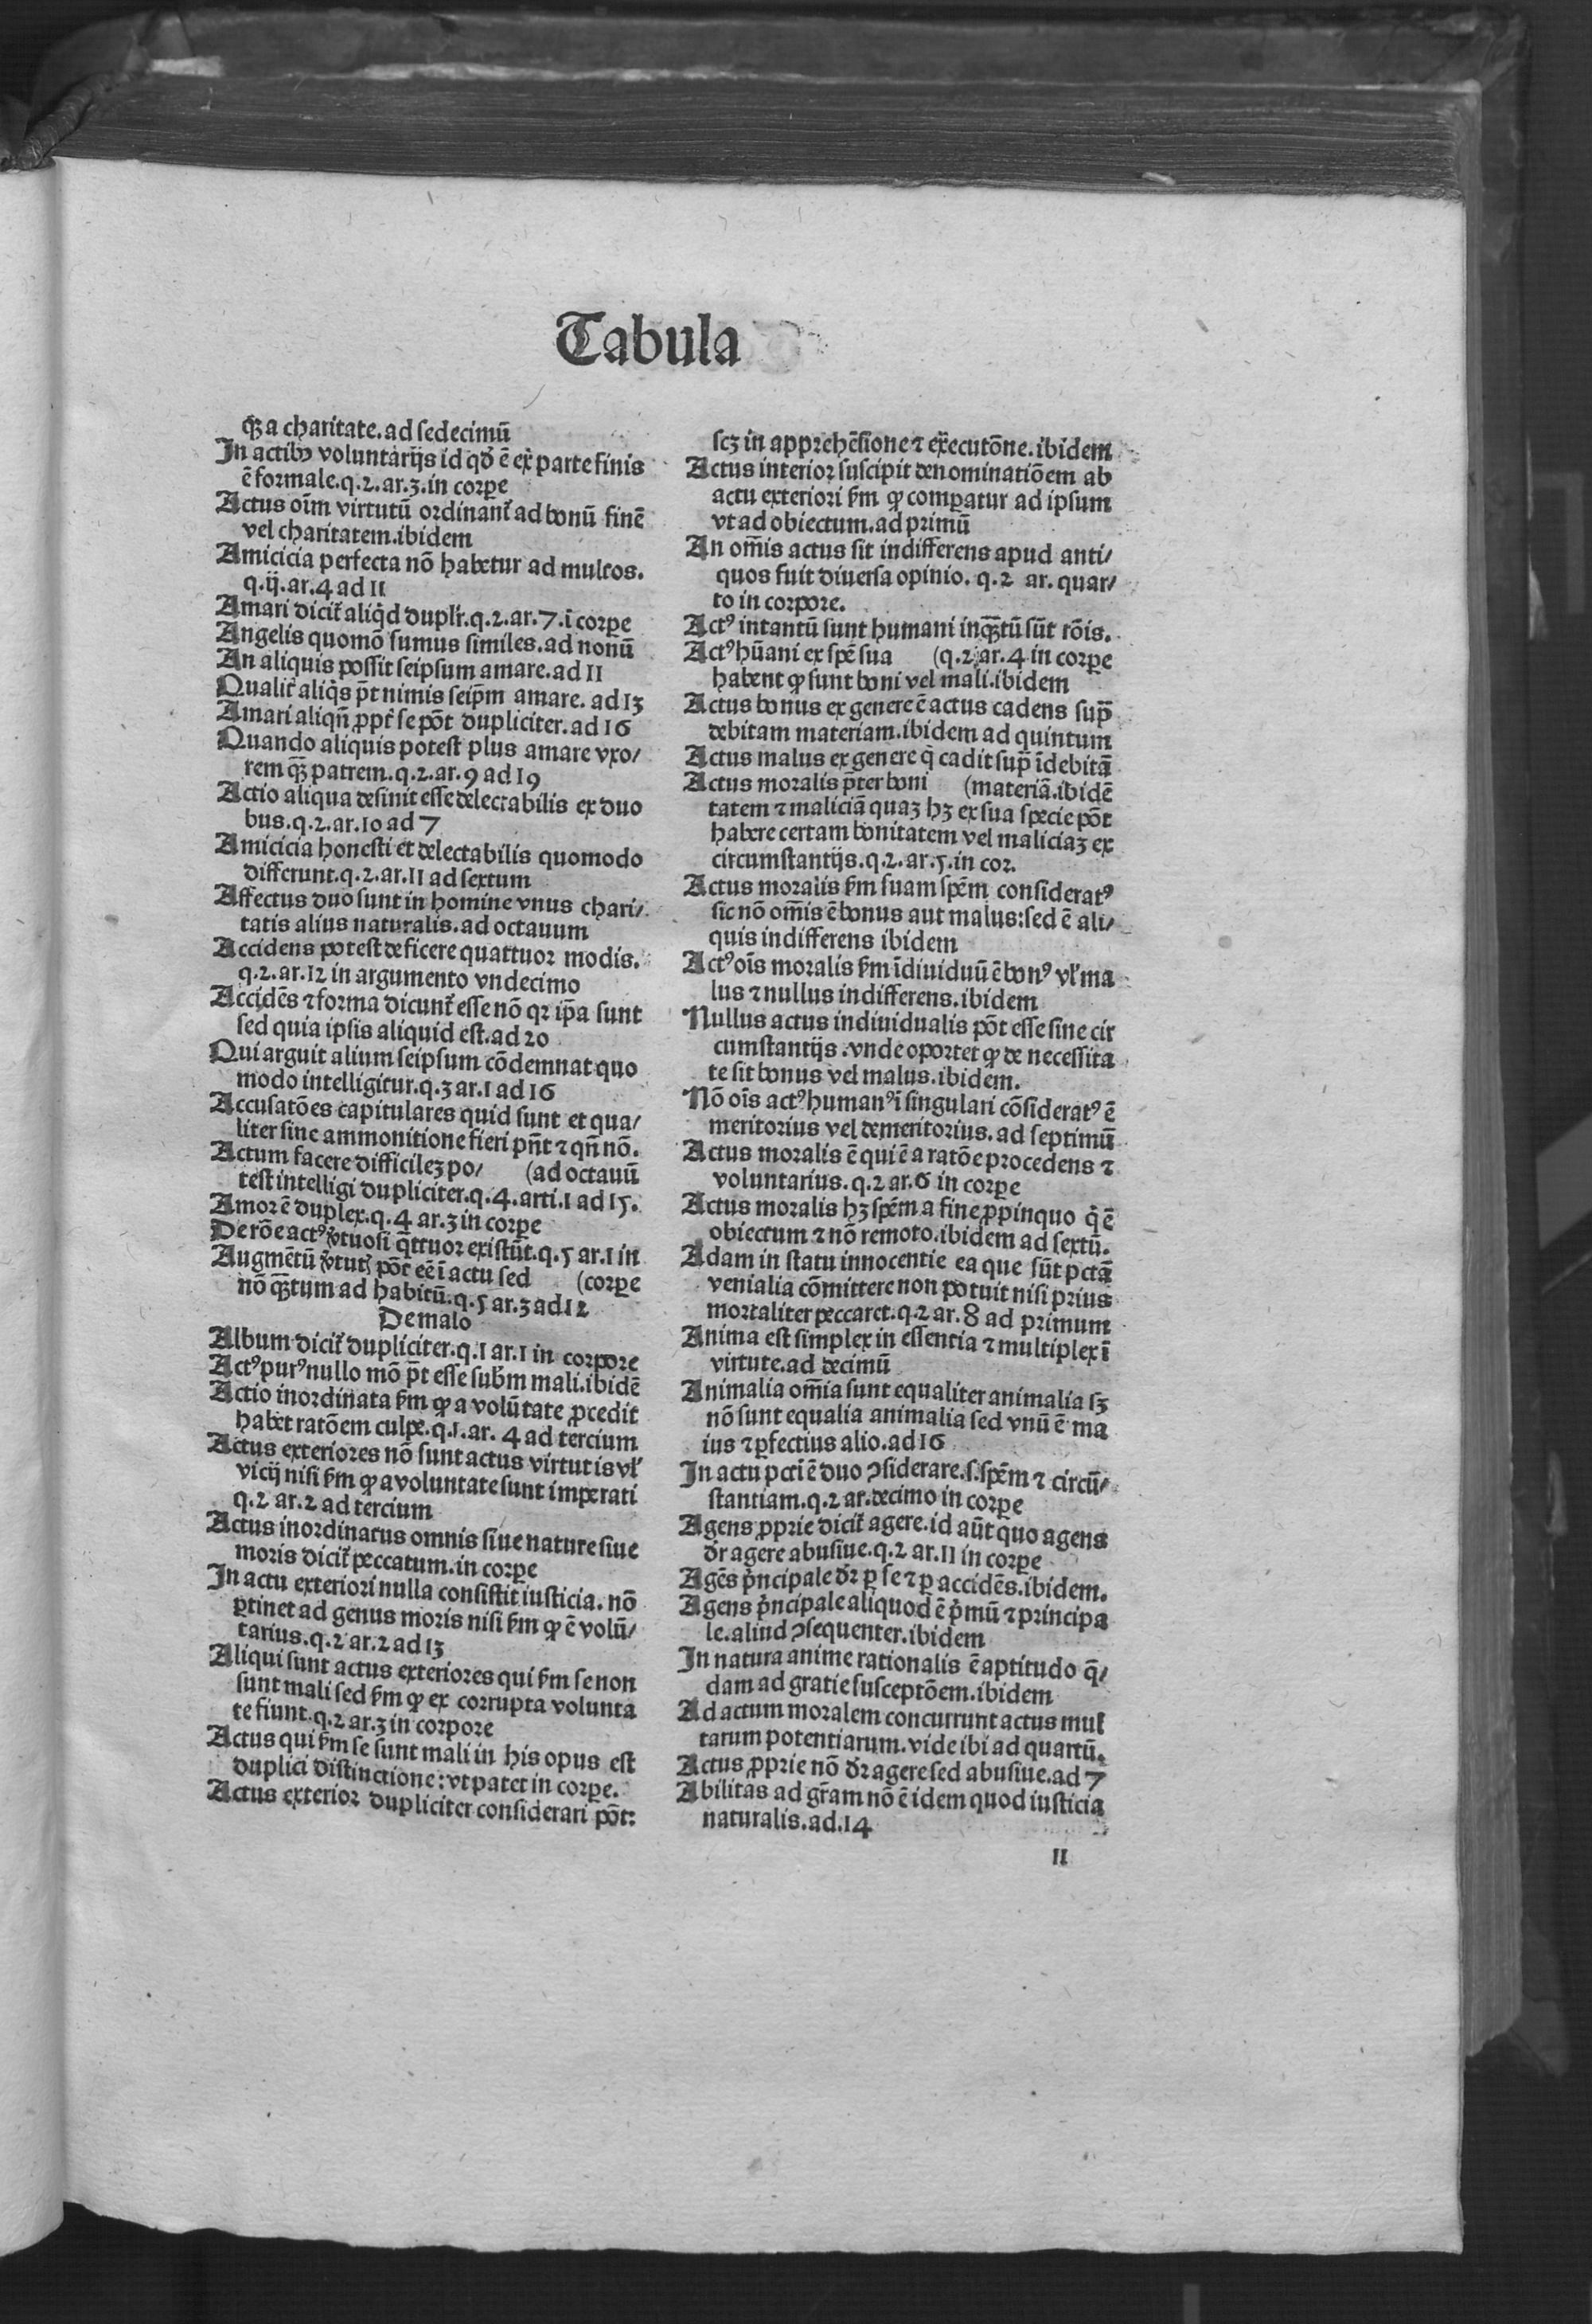 Tabula
q̃ꝫ a charitate.ad sedecimū
In actibꝰ voluntarijs id qđ ē ex parte finis
ē formale.q.2.ar.3.in corpe
Actus oīm virtutū ordinant̄ ad bonū finē
vel charitatem.ibidem
Amicicia perfecta nō habetur ad multos.
q.ij.ar.4 ad 11
Amari dicit̄ aliq̇d duplr̄.q.2.ar.7.ī corpe
Angelis quomō sumus similes.ad nonū
An aliquis possit seipsum amare.ad 11
Qualit̄ aliq̇s p̄t nimis seip̄m amare. ad 13
Amari aliqn̄ ꝓpt̄ se pōt dupliciter.ad 16
Quando aliquis potest plus amare vxo/
rem q̃ꝫ patrem.q.2.ar.9 ad 19
Actio aliqua desinit esse delectabilis ex duo
bus.q.2.ar.10 ad 7
Amicicia honesti et delectabilis quomodo
differunt.q.2.ar.11 ad sextum
Affectus duo sunt in homine vnus chari/
tatis alius naturalis.ad octauum
Accidens potest deficere quattuor modis.
q.2.ar.12 in argumento vndecimo
Accidēs ⁊ forma dicunt̄ esse nō qꝛ ip̄a sunt
sed quia ipsis aliquid est.ad 20
Qui arguit alium seipsum cōdemnat quo
modo intelligitur.q.3 ar.1 ad 16
Accusatōes capitulares quid sunt et qua/
liter sine ammonitione fieri pn̄t ⁊ qn̄ nō.
Actum facere difficileꝫ po/ (ad octauū
test intelligi dupliciter.q.4.arti.1 ad 15.
Amor ē duplex.q.4 ar.3 in corpe
De rōe actꝰ v̓tuosi q̄ttuor existūt.q.5 ar.1 in
Augmētū v̓tutꝭ pōt eē ī actu sed (corpe
nō q̃ꝫtum ad habitū.q.5 ar.3 ad 12
De malo
Album dicit̄ dupliciter.q.1 ar.1 in corpore
Actꝰ purꝰ nullo mō p̄t esse subm̄ mali.ibidē
Actio inordinata ẜm ꝙ a volūtate ꝓcedit
habet ratōem culpe.q.1.ar. 4 ad tercium
Actus exteriores nō sunt actus virtutis vl̓
vicij nisi ẜm ꝙ a voluntate sunt imperati
q.2 ar.2 ad tercium
Actus inordinatus omnis siue nature siue
moris dicit̄ peccatum.in corpe
In actu exteriori nulla consistit iusticia. nō
ꝑtinet ad genus moris nisi ẜm ꝙ ē volū/
tarius.q.2 ar.2 ad 13
Aliqui sunt actus exteriores qui ẜm se non
sunt mali sed ẜm ꝙ ex corrupta volunta
te fiunt.q.2 ar.3 in corpore
Actus qui ẜm se sunt mali in his opus est
duplici distinctione:vt patet in corpe.
Actus exterior dupliciter considerari pōt:
scꝫ in apprehēsione ⁊ executōne.ibidem
Actus interior suscipit denominatiōem ab
actu exteriori ẜm ꝙ comparatur ad ipsum
vt ad obiectum.ad primū
An om̄is actus sit indifferens apud anti/
quos fuit diuersa opinio. q.2 ar. quar/
to in corpore.
Actꝰ intantū sunt humani inq̃ꝫtū sūt rōis.
Actꝰ hūani ex spē sua (q.2 ar.4 in corpe
habent ꝙ sunt boni vel mali.ibidem
Actus bonus ex genere ē actus cadens sup̄
debitam materiam.ibidem ad quintum
Actus malus ex genere q̇ cadit sup̄ īdebitā
Actus moralis p̄ter boni (materiā.ibidē
tatem ⁊ maliciā quaꝫ hꝫ ex sua specie pōt
habere certam bonitatem vel maliciaꝫ ex
circumstantijs.q.2.ar.5.in cor.
Actus moralis ẜm suam spēm consideratꝰ
sic nō om̄is ē bonus aut malus:sed ē ali/
quis indifferens ibidem
Actꝰ oīs moralis ẜm īdiuiduū ē bonꝰ vl̓ ma
lus ⁊ nullus indifferens.ibidem
Nullus actus indiuidualis pōt esse sine cir
cumstantijs.vnde oportet ꝙ de necessita
te sit bonus vel malus.ibidem.
Nō oīs actꝰ humanꝰ ī singulari cōsideratꝰ ē
meritorius vel demeritorius.ad septimū
Actus moralis ē qui ē a ratōe procedens ⁊
voluntarius.q.2 ar.6 in corpe
Actus moralis hꝫ spēm a fine ꝓpinquo q̇ ē
obiectum ⁊ nō remoto.ibidem ad sextū.
Adam in statu innocentie ea que sūt pctā
venialia cōmittere non potuit nisi prius
mortaliter peccaret.q.2 ar.8 ad primum
Anima est simplex in essentia ⁊ multiplex ī
virtute.ad decimū
Animalia om̄ia sunt equaliter animalia sꝫ
nō sunt equalia animalia sed vnū ē ma
ius ⁊ ꝑfectius alio.ad 16
In actu pcti ē duo ꝯsiderare.s.spēm ⁊ circū/
stantiam.q.2 ar.decimo in corpe
Agens ꝓprie dicit̄ agere.id aūt quo agens
dr̄ agere abusiue.q.2 ar.11 in corpe
Agēs p̓ncipale dr̄ ꝑ se ⁊ ꝑ accidēs.ibidem.
Agens p̓ncipale aliquod ē p̓mū ⁊ principa
le.aliud ꝯsequenter.ibidem
In natura anime rationalis ē aptitudo q̄/
dam ad gratie susceptōem.ibidem
Ad actum moralem concurrunt actus mul
tarum potentiarum.vide ibi ad quartū.
Actus ꝓprie nō dr̄ agere sed abusiue.ad 7
Abilitas ad gr̄am nō ē idem quod iusticia
naturalis.ad.14
II